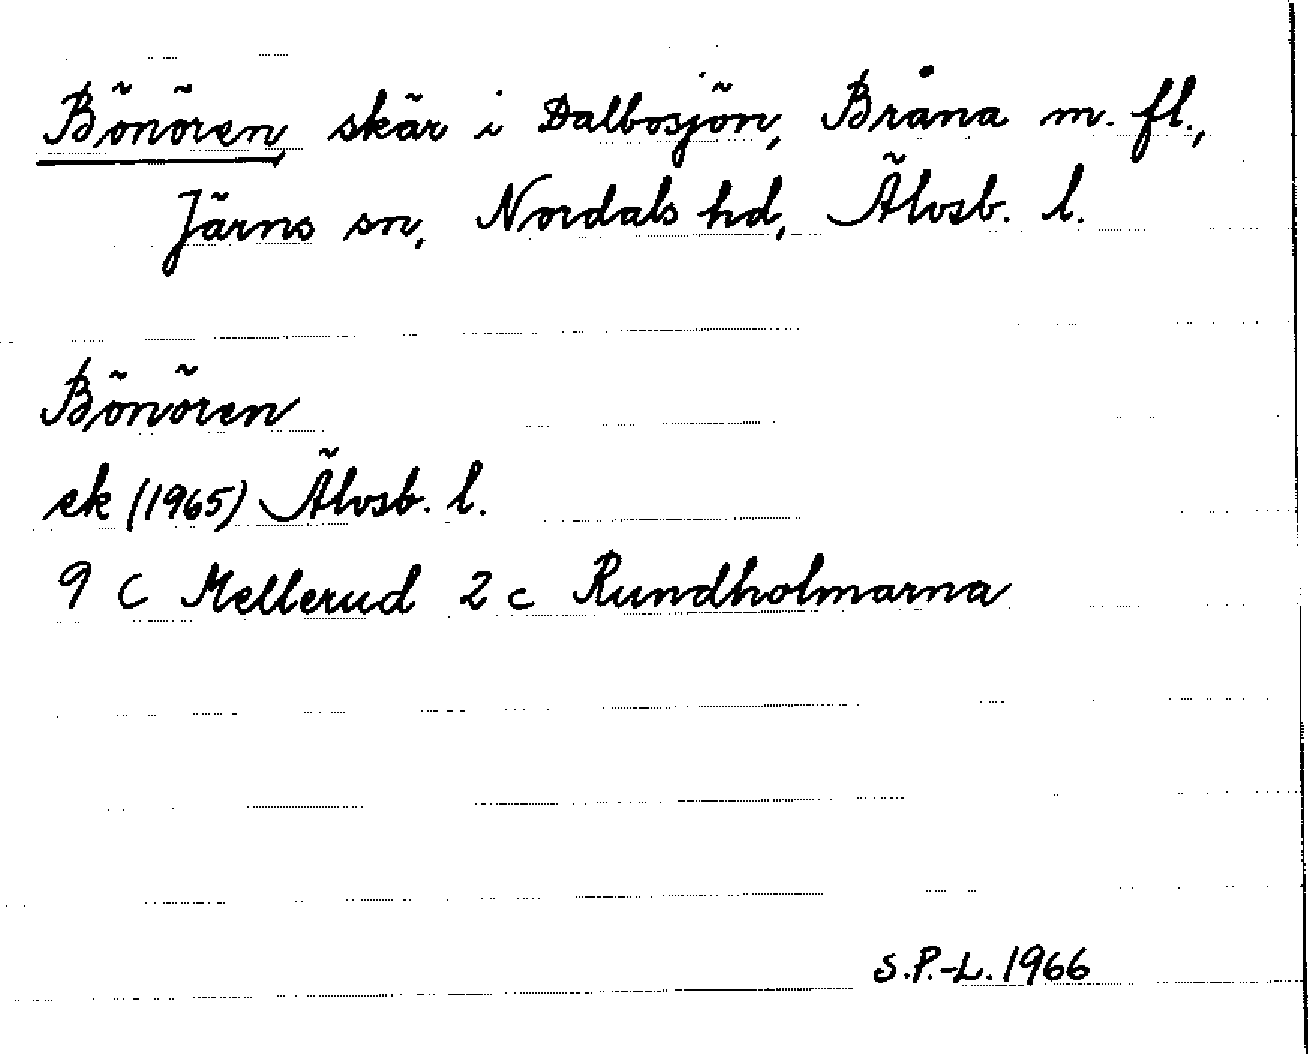 Bönören, skär i Dalbosjön, Bråna m. fl.,
Järns sn, Nordals hd, Älvsb. l.
Bönören
ek (1965) Älvsb. l.
9 C Mellerud 2 c Rundholmarna
S.P.-L. 1966